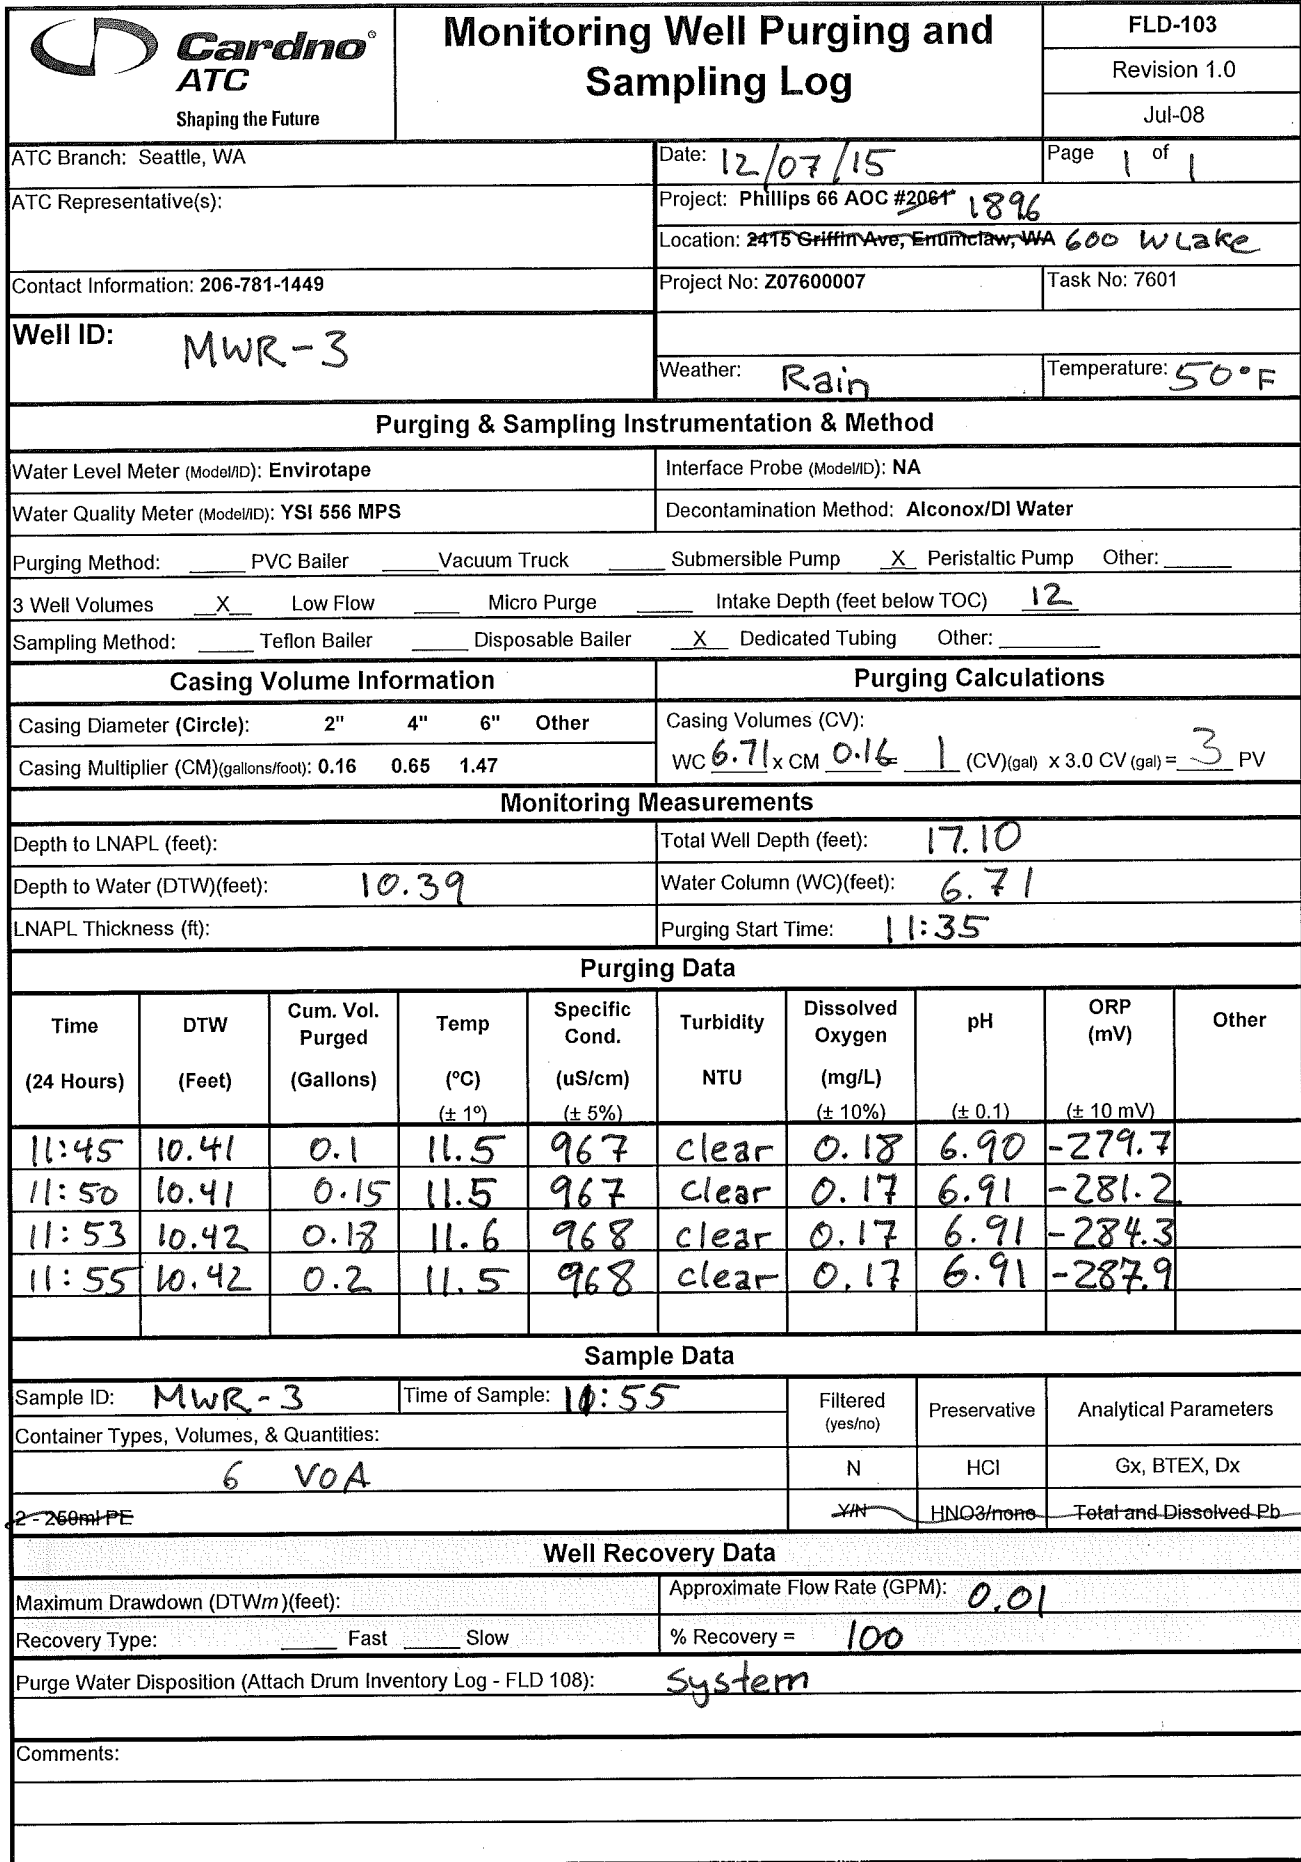 Cardno®
ATC
Shaping the Future
Monitoring Well Purging and
Sampling Log
FLD-103
Revision 1.0
Jul-08
ATC Branch: Seattle, WA
Date: 12/07/15
Page 1 of 1
ATC Representative(s):
Project: Phillips 66 AOC #2061 1896
Location: 2415 Griffin Ave, Enumclaw, WA 600 W Lake
Contact Information: 206-781-1449
Project No: Z07600007
Task No: 7601
Well ID: MWR-3
Weather: Rain
Temperature: 50°F
Purging & Sampling Instrumentation & Method
Water Level Meter (Model/ID): Envirotape
Interface Probe (Model/ID): NA
Water Quality Meter (Model/ID): YSI 556 MPS
Decontamination Method: Alconox/DI Water
Purging Method: ____ PVC Bailer ____ Vacuum Truck ____ Submersible Pump X Peristaltic Pump Other: ____
3 Well Volumes X Low Flow ____ Micro Purge ____ Intake Depth (feet below TOC) 12
Sampling Method: ____ Teflon Bailer ____ Disposable Bailer X Dedicated Tubing Other: ____
Casing Volume Information
Purging Calculations
Casing Diameter (Circle): 2" 4" 6" Other
Casing Volumes (CV):
Casing Multiplier (CM)(gallons/foot): 0.16 0.65 1.47
WC 6.71 x CM 0.16 = 1 (CV)(gal) x 3.0 CV (gal) = 3 PV
Monitoring Measurements
Depth to LNAPL (feet):
Total Well Depth (feet): 17.10
Depth to Water (DTW)(feet): 10.39
Water Column (WC)(feet): 6.71
LNAPL Thickness (ft):
Purging Start Time: 11:35
Purging Data
Time (24 Hours)
DTW (Feet)
Cum. Vol. Purged (Gallons)
Temp (ºC) (± 1º)
Specific Cond. (uS/cm) (± 5%)
Turbidity NTU
Dissolved Oxygen (mg/L) (± 10%)
pH (± 0.1)
ORP (mV) (± 10 mV)
Other
11:45 10.41 0.1 11.5 967 clear 0.18 6.90 -279.7
11:50 10.41 0.15 11.5 967 clear 0.17 6.91 -281.2
11:53 10.42 0.18 11.6 968 clear 0.17 6.91 -284.3
11:55 10.42 0.2 11.5 968 clear 0.17 6.91 -287.9
Sample Data
Sample ID: MWR-3
Time of Sample: 11:55
Filtered (yes/no)
Preservative
Analytical Parameters
Container Types, Volumes, & Quantities:
6 VOA
N
HCl
Gx, BTEX, Dx
2 - 250ml PE
Y/N
HNO3/none
Total and Dissolved Pb
Well Recovery Data
Maximum Drawdown (DTWm)(feet):
Approximate Flow Rate (GPM): 0.01
Recovery Type: ____ Fast ____ Slow
% Recovery = 100
Purge Water Disposition (Attach Drum Inventory Log - FLD 108): System
Comments: